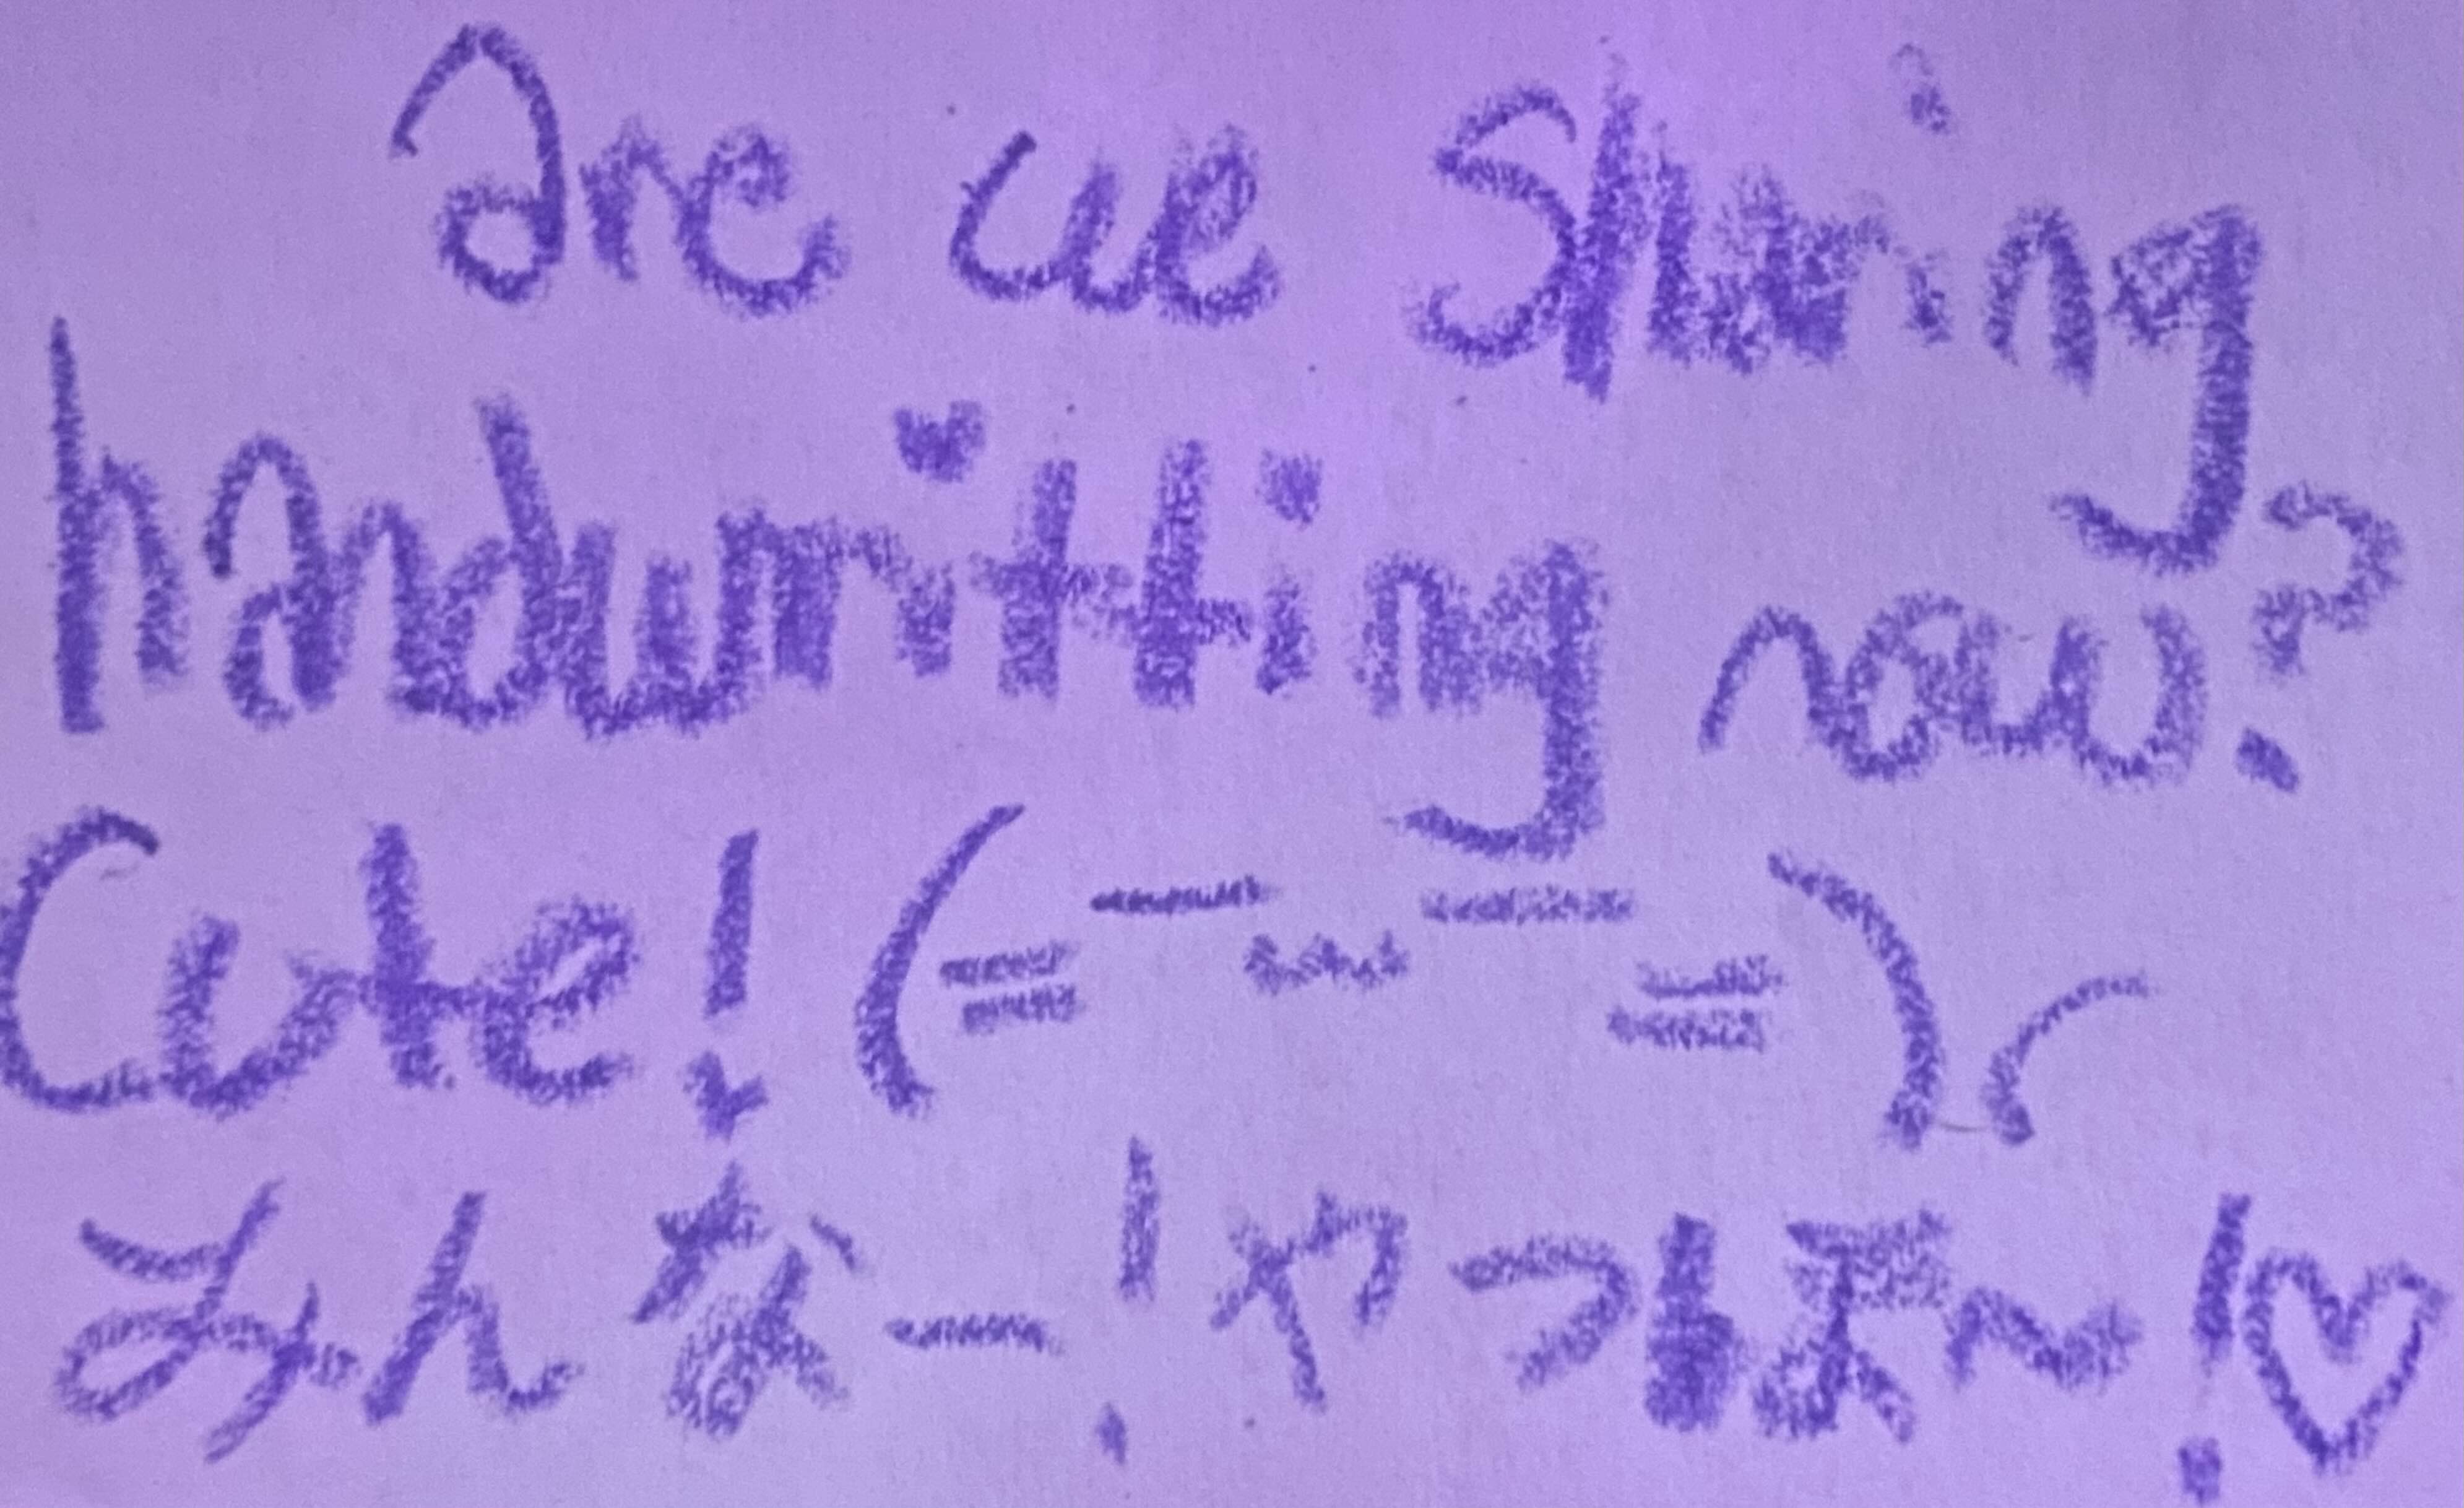 are we sharing
handwritting now?
Cute! (= ‾ ﹏ ‾ =)╭
みんな〜!やっほ〜!♡